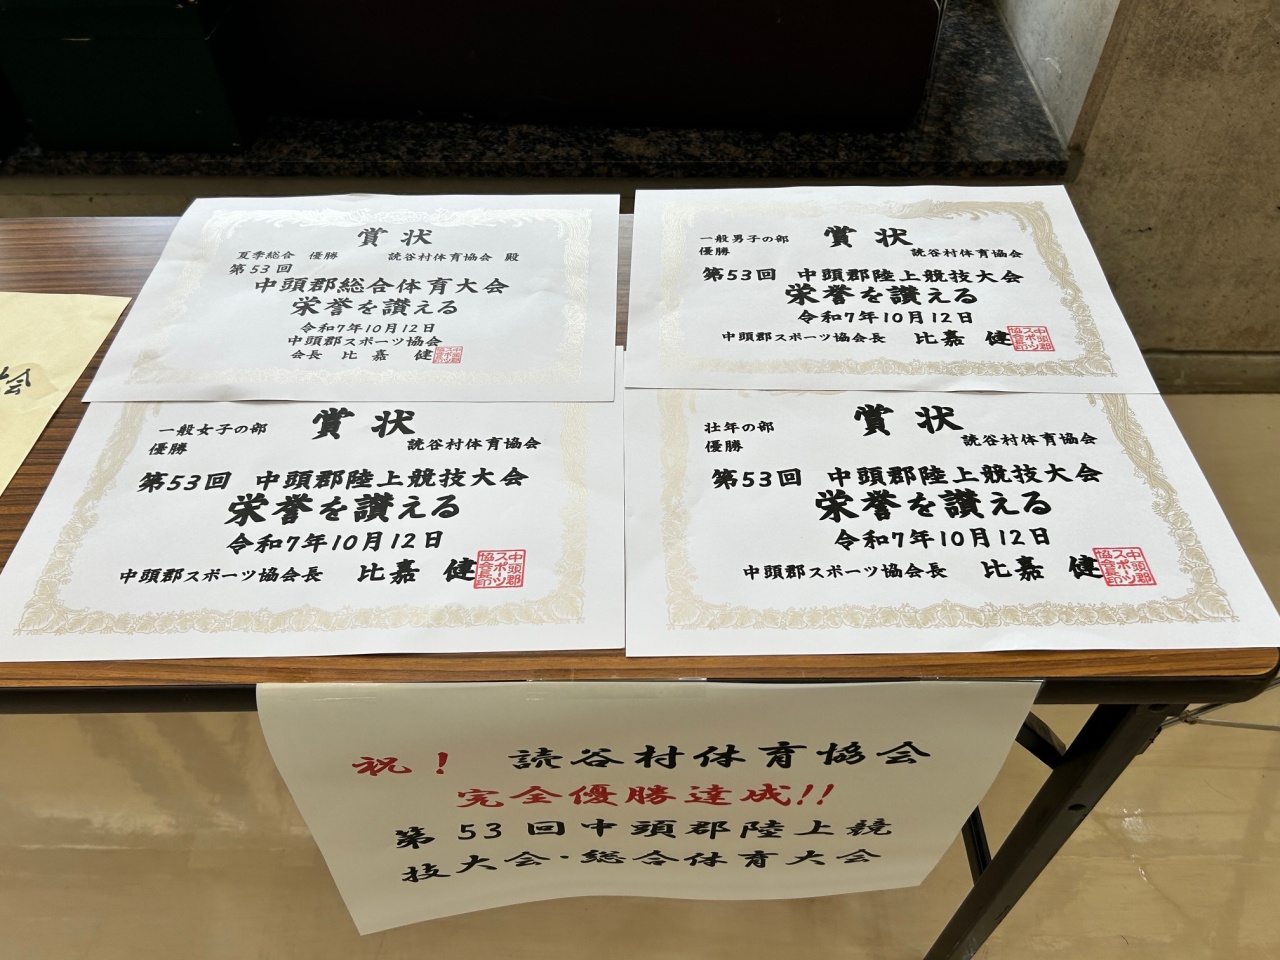 賞状
夏季総合 優勝 読谷村体育協会 殿
第53回
中頭郡総合体育大会
栄誉を讃える
令和7年10月12日
中頭郡スポーツ協会
会長 比嘉 健
賞状
一般男子の部
優勝 読谷村体育協会
第53回 中頭郡陸上競技大会
栄誉を讃える
令和7年10月12日
中頭郡スポーツ協会長 比嘉 健
中頭郡
スポーツ
協会長印
賞状
一般女子の部
優勝 読谷村体育協会
第53回 中頭郡陸上競技大会
栄誉を讃える
令和7年10月12日
中頭郡スポーツ協会長 比嘉 健
中頭郡
スポーツ
協会長印
賞状
壮年の部
優勝 読谷村体育協会
第53回 中頭郡陸上競技大会
栄誉を讃える
令和7年10月12日
中頭郡スポーツ協会長 比嘉 健
中頭郡
スポーツ
協会長印
祝! 読谷村体育協会
完全優勝達成!!
第53回中頭郡陸上競
技大会・総合体育大会